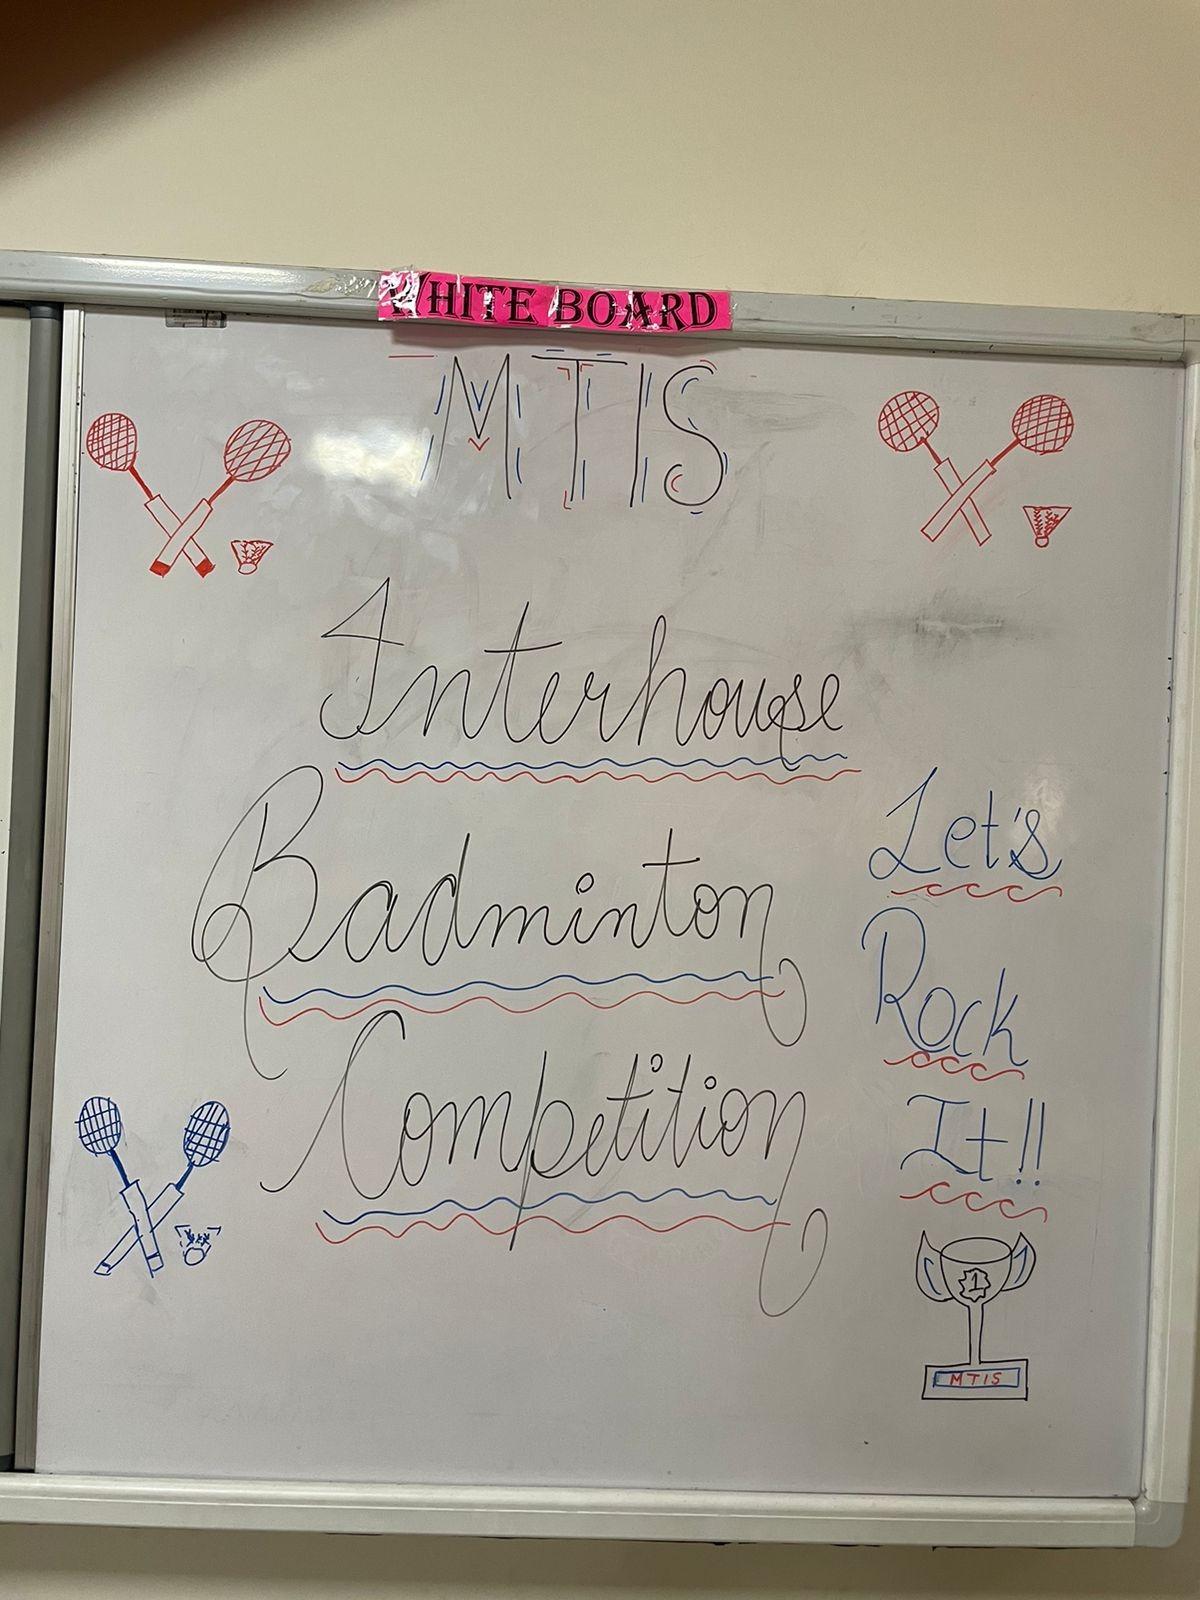 WHITE BOARD
MTIS
Interhouse
Badminton
Competition
Let's
Rock
It!!
1
MTIS